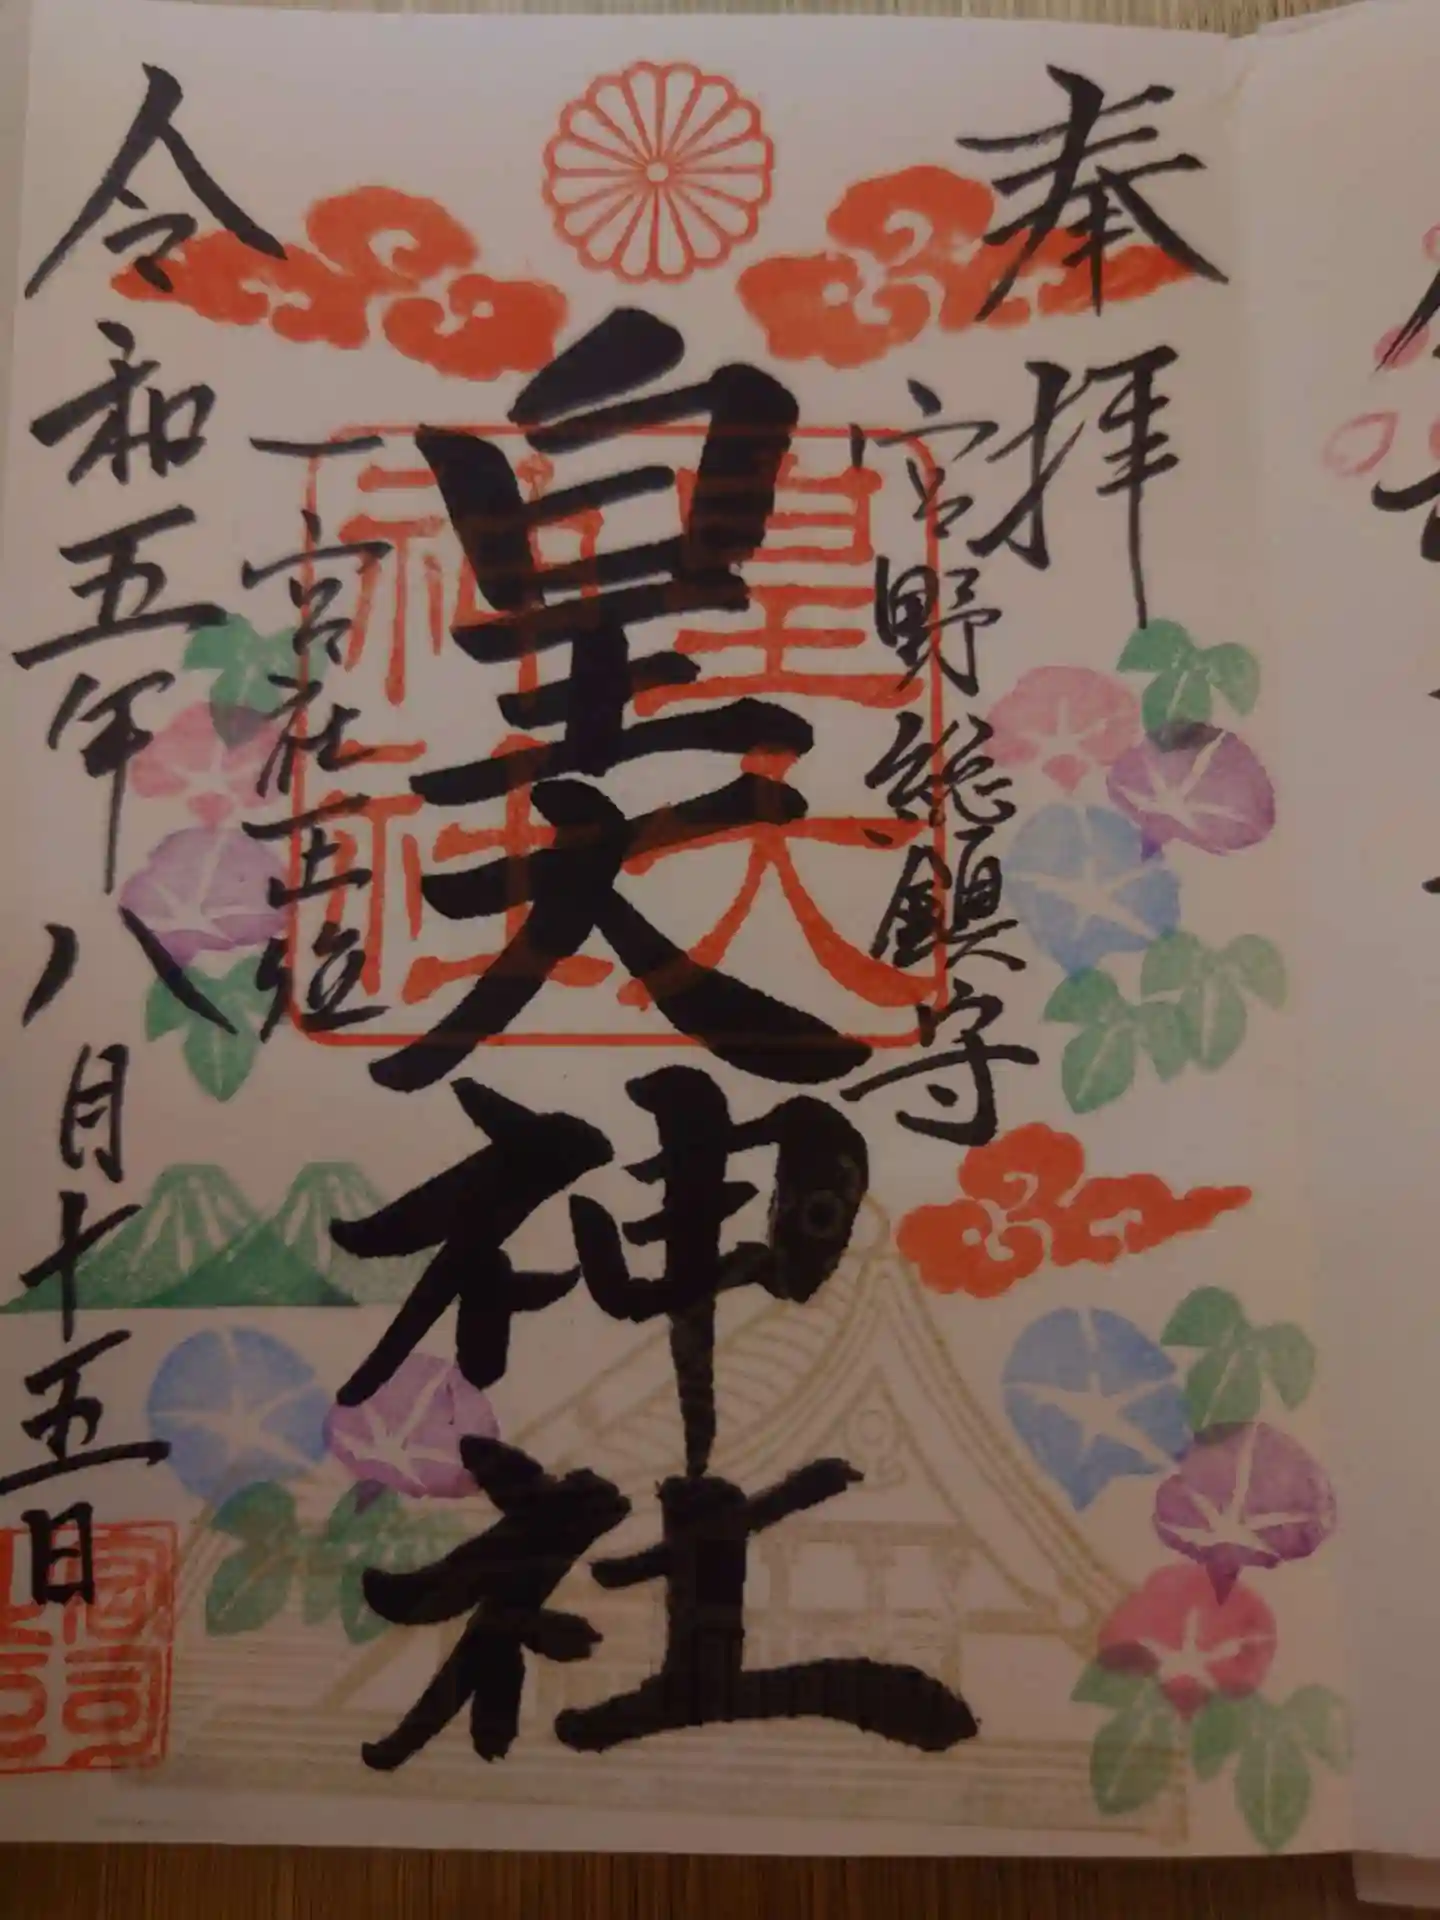 奉拝
宮野総鎮守
皇大神社
皇大
神社
一宮社正殿
令和五年八月十五日
宮司